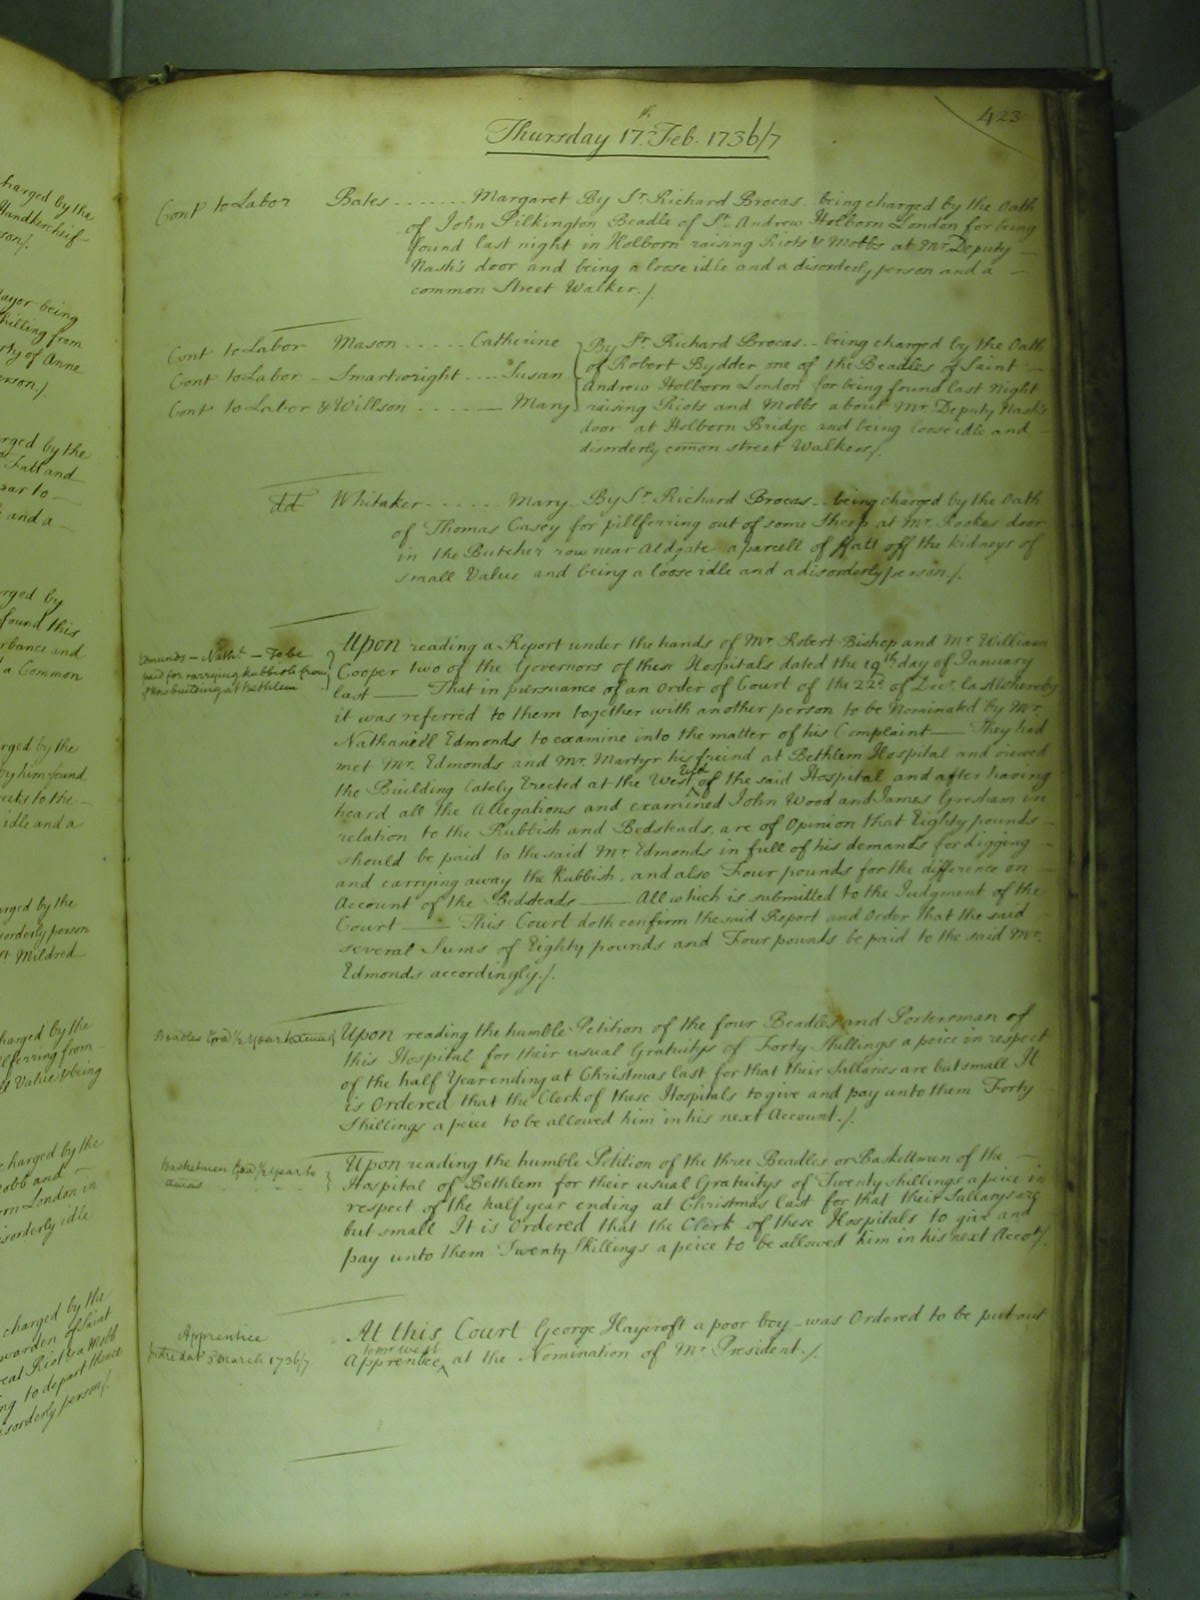 423
Thursday 17th. Feb. 1736/7
Cont to Labor Bates ....... Margaret By Sr. Richard Brocas being charged by the Oath
of John Pilkington Beadle of St. Andrew Holborn London for being
found last night in Holborn raising Riots & Mobbs at Mr. Deputy
Nash's door and being a loose idle and a disorderly person and a
common Street Walker./.
Cont to Labor Mason ..... Catherine
Cont to Labor Smartwright .... Susan
Cont to Labor & Willson ...... Mary
By Sr. Richard Brocas being charged by the Oath
of Robert Bydder one of the Beadles of Saint
Andrew Holborn London for being found last Night
raising Riots and Mobbs about Mr. Deputy Nash's
door at Holborn Bridge and being loose idle and
disorderly comon street Walkers/.
dd Whitaker ...... Mary By Sr. Richard Brocas being charged by the Oath
of Thomas Casey for pillferring out of some Sheep at Mr. Rookes door
in the Butcher row near Aldgate a parcell of ffatt off the kidneys of
small Value and being a loose idle and a disorderly person./.
Edmunds - Nathl. - To be
paid for carrying Rubbish from
the building at Bethlem
Upon reading a Report under the hands of Mr. Robert Bishop and Mr. William
Cooper two of the Governors of these Hospitals dated the 19th day of January
last — That in pursuance of an Order of Court of the 22d. of Decr. last whereby
it was referred to them together with another person to be Nominated by Mr.
Nathaniell Edmonds to examine into the matter of his Complaint — They had
met Mr. Edmonds and Mr. Martyr his freind at Bethlem Hospital and viewed
the Building lately Erected at the West End of the said Hospital and after having
heard all the Allegations and examined John Wood and James Gresham in
relation to the Rubbish and Bedsteads, are of Opinion that Eighty pounds
should be paid to the said Mr. Edmonds in full of his demands for digging
and carrying away the Rubbish, and also Four pounds for the difference on
Account of the Bedsteads — All which is submitted to the Judgment of the
Court — This Court doth confirm the said Report and Order that the said
several Sums of Eighty pounds and Four pounds be paid to the said Mr.
Edmonds accordingly./.
Beadles Gra 1/2 Year
Upon reading the humble Petition of the four Beadles and Porters man of
this Hospital for their usual Gratuitys of Forty Shillings a peice in respect
of the half Year ending at Christmas last for that their Sallaries are but small It
is Ordered that the Clerk of these Hospitals to give and pay unto them Forty
Shillings a peice to be allowed him in his next Account./.
Basketmen Gra 1/2 Year to
Upon reading the humble Petition of the three Beadles or Baskettmen of the
Hospital of Bethlem for their usual Gratuitys of Twenty shillings a peice in
respect of the half year ending at Christmas last for that their Sallarys are
but small It is Ordered that the Clerk of these Hospitals to give and
pay unto them Twenty Shillings a peice to be allowed him in his next Accot/.
Apprentice
dat 3 March 1736/7
At this Court George Haycroft a poor boy was Ordered to be put out
Apprentice at the Nomination of Mr. President./.